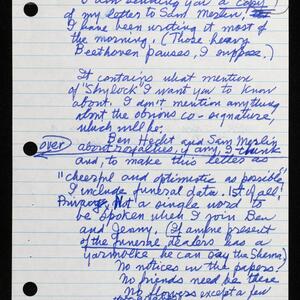 I am sending you a copy
of my letter to Sam Merlin.
I have been writing it most of
the morning. (Those heavy
Beethoven pauses, I suppose.)
It contains what mention
of "Shylock" I want you to know
about. I don't mention anything
about the obvious co-signature,
which will be.
Ben Hecht and Sam Merlin
over about royalties, if any, I think
and, to make this letter as
"cheerful and optimistic as possible"
I include funeral data. 1st of all!
Not a single word to
be spoken when I join Ben
and Jenny. (If anyone present
of the funeral dealers has a
yarmolke he can say the Shema.)
No notices in the papers!
No friends need be there
No flowers except a few